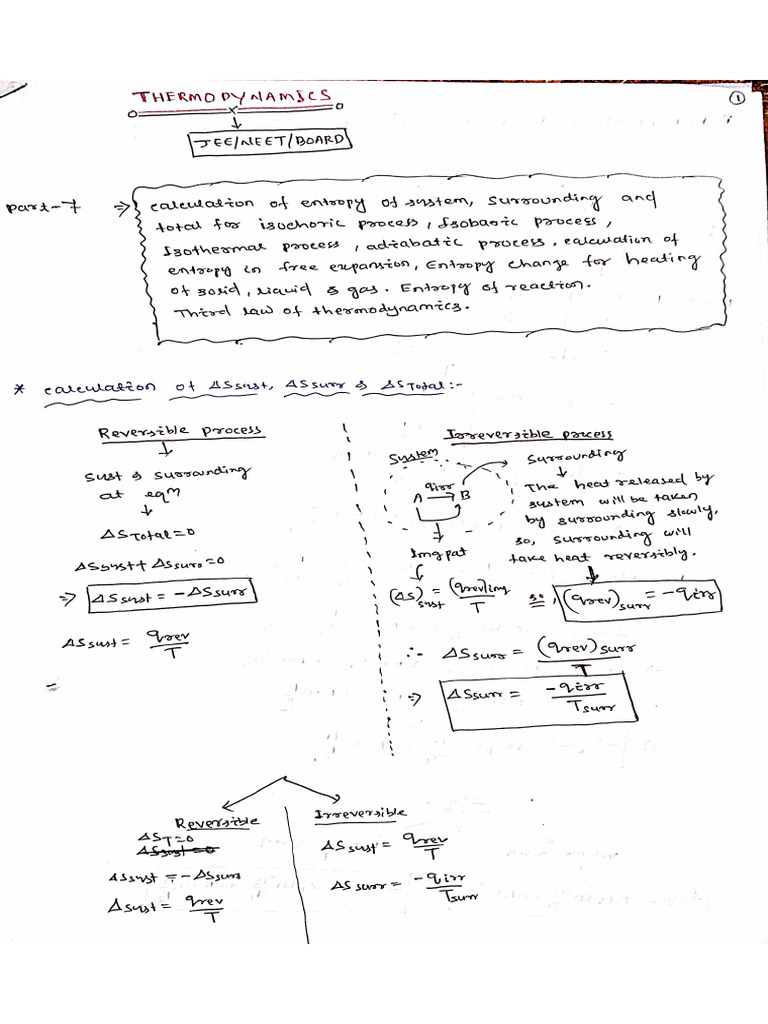 THERMODYNAMICS
1
JEE/NEET/BOARD
Part-7 ⇒ Calculation of entropy of system, surrounding and
total for isochoric process, Isobaric process,
Isothermal process, adiabatic process, calculation of
entropy in free expansion, Entropy change for heating
of solid, liquid & gas. Entropy of reaction.
Third law of thermodynamics.
* Calculation of ΔSsyst, ΔSsurr & ΔSTotal:-
Reversible process
↓
Syst & surrounding
at eqm
↓
ΔSTotal=0
ΔSsyst+ΔSsurr=0
⇒ ΔSsyst = -ΔSsurr
ΔSsyst = qrev/T
Irreversible process
System
qirr
A → B
Img pat
(ΔS)syst = (qrev)img/T
Surrounding
↓
The heat released by
system will be taken
by surrounding slowly,
so, surrounding will
take heat reversibly.
so, (qrev)surr = -qirr
∴ ΔSsurr = (qrev)surr/T
⇒ ΔSsurr = -qirr/Tsurr
Reversible
ΔST=0
ΔSsyst=0
ΔSsyst = -ΔSsurr
ΔSsyst = qrev/T
Irreversible
ΔSsyst = qrev/T
ΔSsurr = -qirr/Tsurr